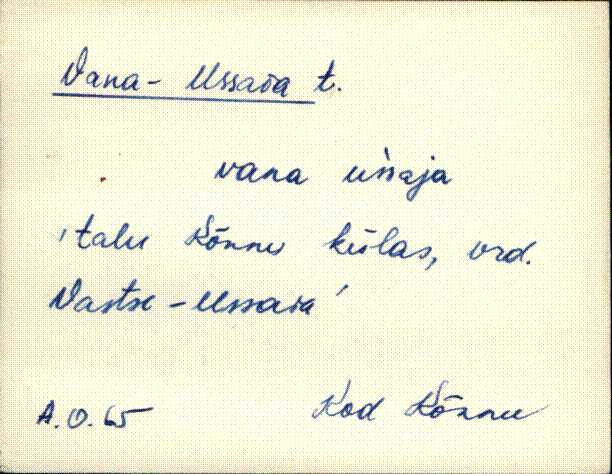 Vana-Ussaia t.
vana uśsaja
'talu Kõnnu külas, vrd.
Vastse-Ussaia'
A.O. 65 Kod Kõnnu